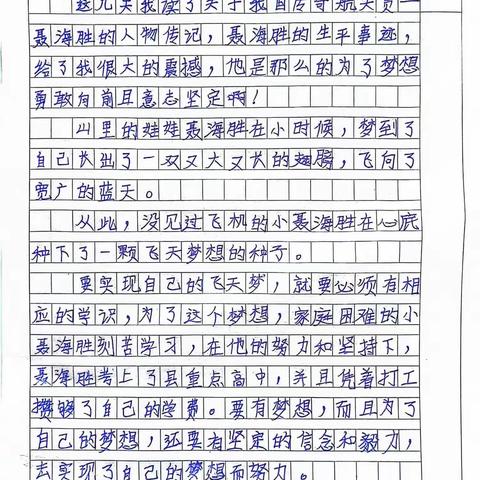 这几天我读了关于我国传奇航天员——
聂海胜的人物传记，聂海胜的生平事迹，
给了我很大的震撼，他是那么的为了梦想
勇敢向前且意志坚定啊！
山里的娃娃聂海胜在小时候，梦到了
自己长出了一双又大又长的翅膀，飞向了
宽广的蓝天。
从此，没见过飞机的小聂海胜在心底
种下了一颗飞天梦想的种子。
要实现自己的飞天梦，就要必须有相
应的学识，为了这个梦想，家庭困难的小
聂海胜刻苦学习，在他的努力和坚持下，
聂海胜考上了县重点高中，并且凭着打工
攒够了自己的学费。要有梦想，而且为了
自己的梦想，还要有坚定的信念和毅力，
去实现了自己的梦想而努力。